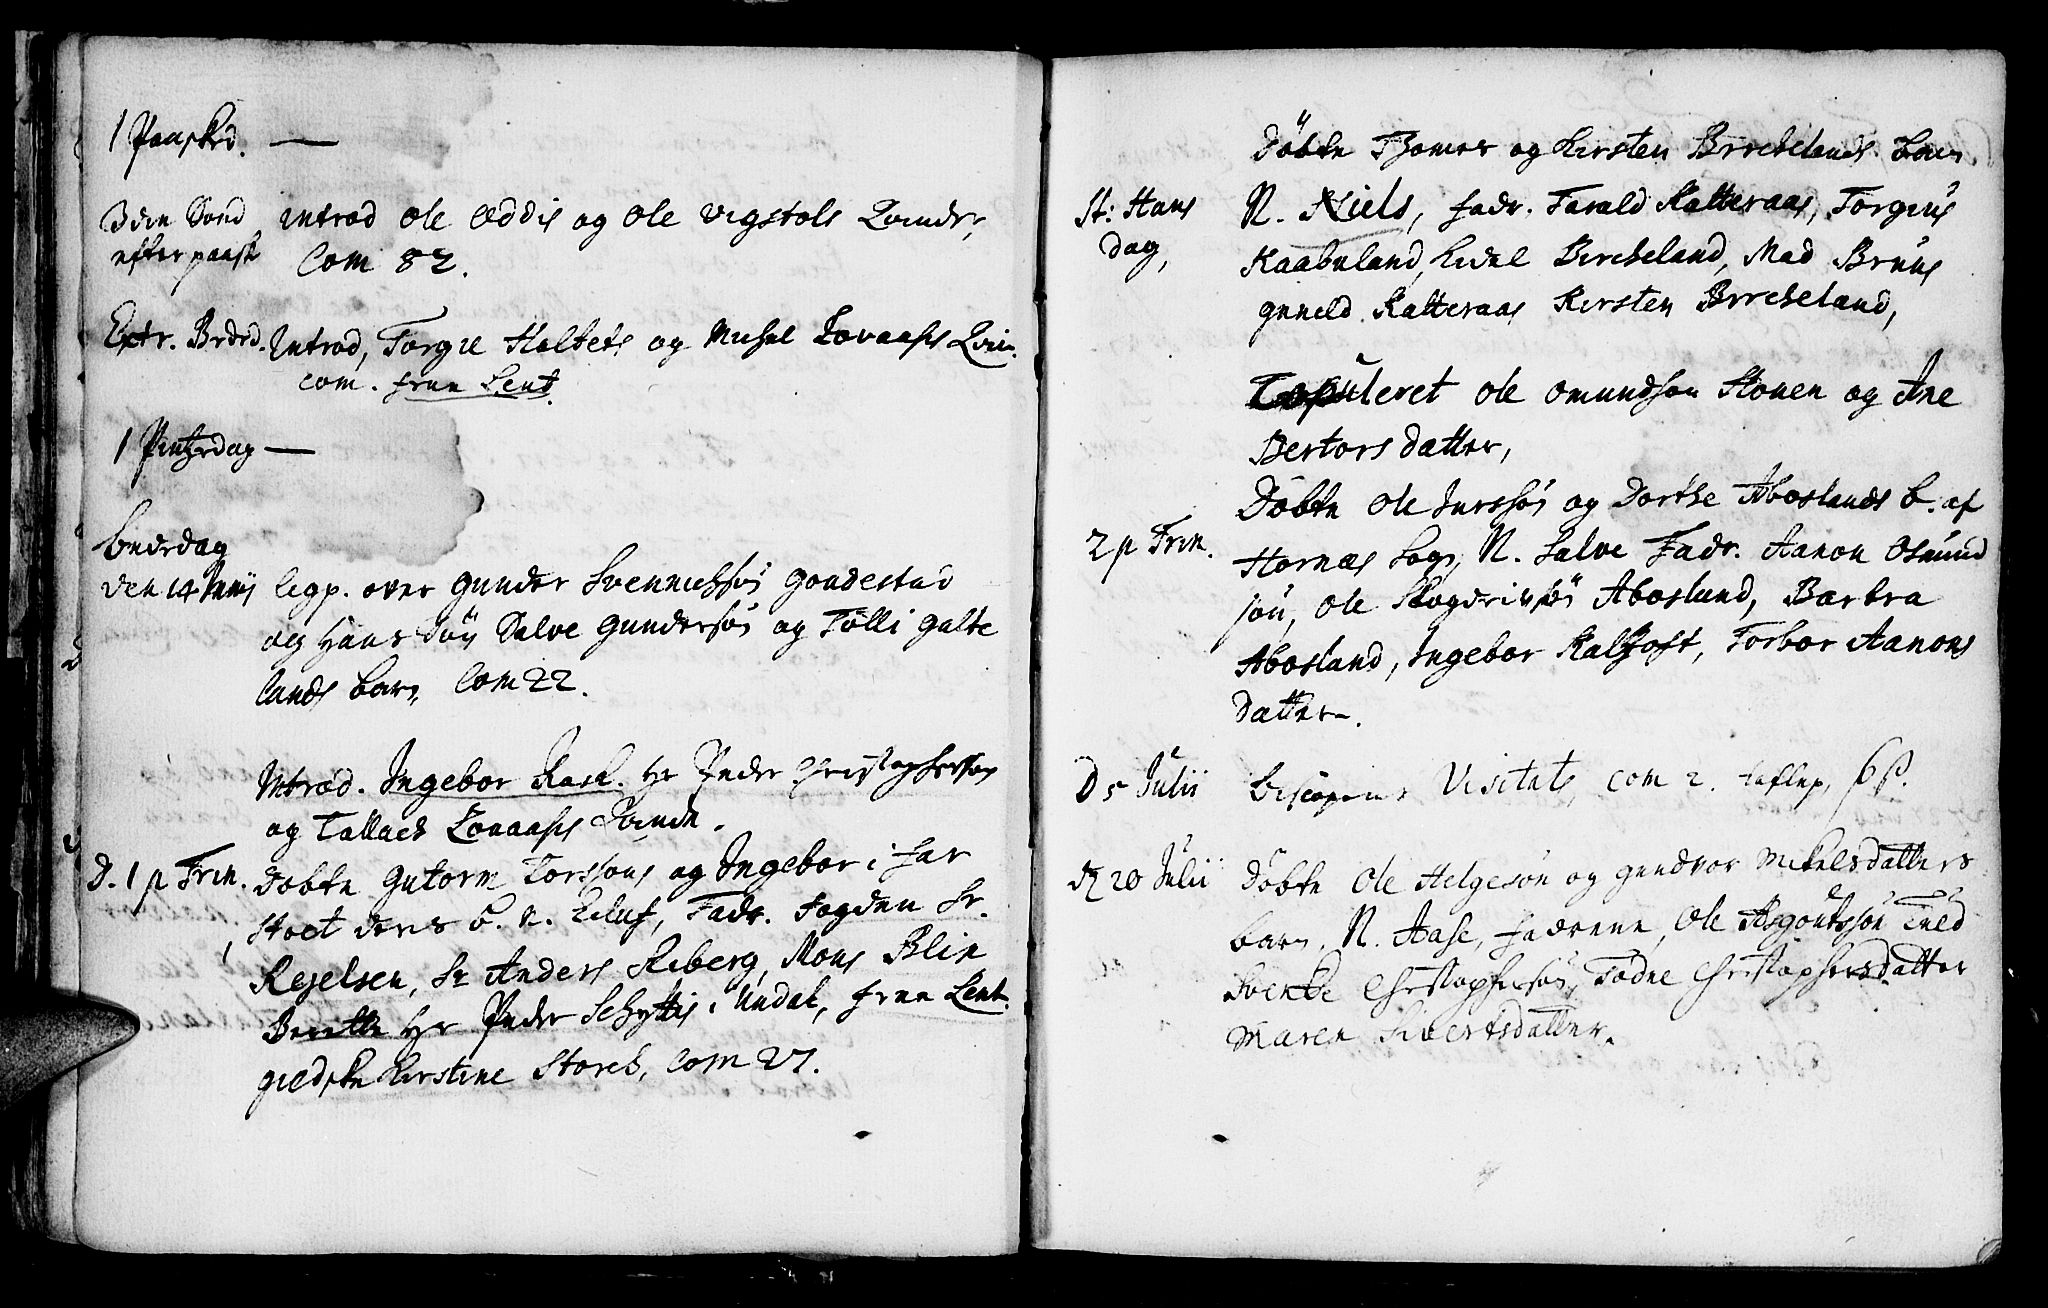 1 Paaskd. —
3den Sønd introd Ole Øddis og Ole Vigstols Qvinder,
efter paask Com 82.
Extr. Brdrd. Introd, Torgie Holtets og Michel Lovaases Qvin.
com. fruu Lent.
1 Pintzedag —
beededag
den 14 Junij ligp. over Gunder Svennichsøs Gondestad
og Hans Søn Salve Gundersøs og Tølli Galte
lands barn, Com 22.
Introd. Ingebor Rask. Hr Peder Christophersøn
og Tallach Lovaases Qvinde.
D. 1 p Trin. Døbte Gutorm Torssøns og Ingebor i far
stoet deres b. N. Eiluf, Fadr. Fogden Sr.
Rejelsen, Sr Anders Riberg, Mons Blix
Hr Peder Schyttis i Undal, fruu Lent.
giedske Kirstine Storch, Com 27.
Døbte Thomes og Kirsten Birchelands barn
St: Hans N. Niels, fadr. Tarald Katteraas, Torgius
Dag, Kaabuland, Kidel Bircheland, Mad Bruus
guneld Katteraas Kirsten Birckeland,
Copuleret Ole Omundsøn Stouen og Ane
Bertors datter,
Døbte Ole Iverssøs og Dorthe Aboslands b. af
2 p Trin. Hornæs Sogn, N. Salve Fadr. Aanon Osmund
søn, Ole Aboslund, Barbra
Abosland, Ingebor Kalhoft, Torbor Aanons
Datter.
D 5 Julii Biscopens Visitats, com 2.
D 20 Julii Døbte Ole Helgesøn og Gundvor Mikelsdatters
barn, N. Aase, fadrene, Ole Asgoutssøn
Svenke Christophersøn, Tødne Christophersdatter
Maren Sivertsdatter.